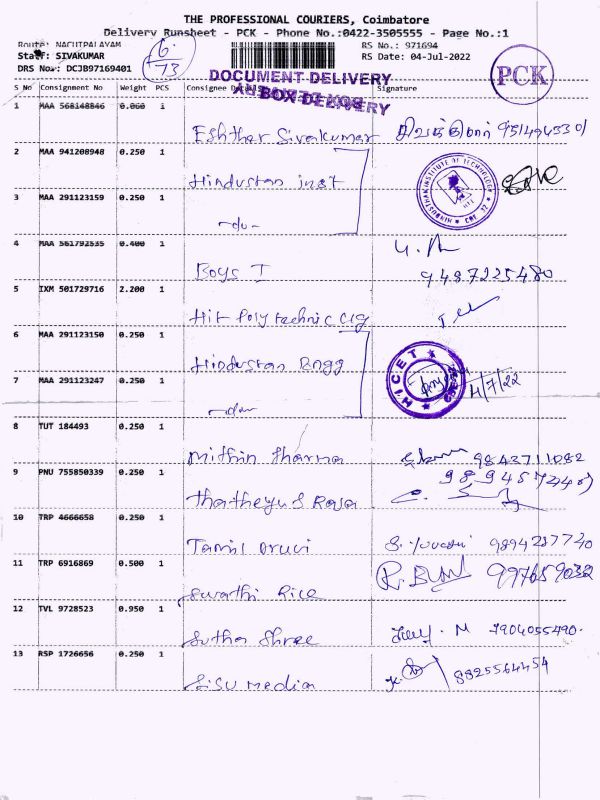 THE PROFESSIONAL COURIERS, Coimbatore
Delivery Runsheet - PCK - Phone No.:0422-3505555 - Page No.:1
Route: NACUTPALAYAM
Staff: SIVAKUMAR
DRS No.: DCJB97169401
6
73
RS No.: 971694
RS Date: 04-Jul-2022
PCK
DOCUMENT DELIVERY
BOX DELIVERY
S No Consignment No Weight PCS Consignee Details Signature
1 MAA 568148846 0.060 1
Eshthar Sivakumar
2 MAA 941208948 0.250 1
Hindustan inst
3 MAA 291123159 0.250 1
-do-
4 MAA 561792535 0.400 1
Boys I 9487225480
5 IXM 501729716 2.200 1
Hit Poly technic clg
6 MAA 291123150 0.250 1
Hindustan Engg
HICET
4/7/22
7 MAA 291123247 0.250 1
-do-
8 TUT 184493 0.250 1
Mithin Sharma 9843711082
9 PNU 755850339 0.250 1
10 TRP 4666658 0.250 1
Tamil Oruvi
11 TRP 6916869 0.500 1
Swathi Rice
12 TVL 9728523 0.950 1
Sutha Shree 7904055490
13 RSP 1726656 0.250 1
SiSU media 8825564454